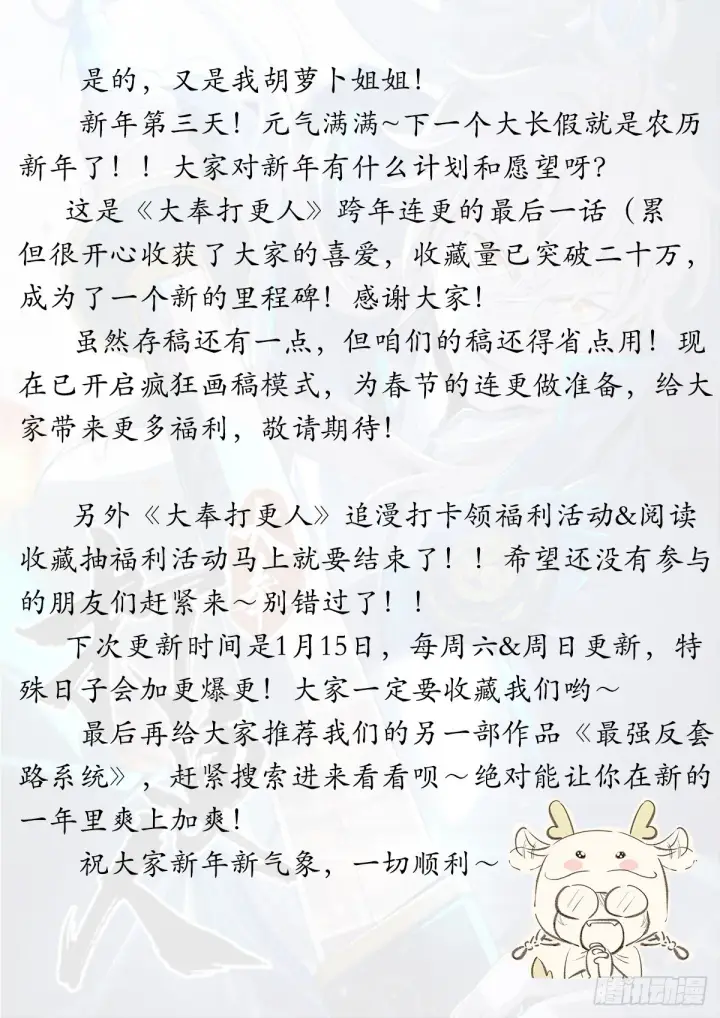 是的，又是我胡萝卜姐姐！
新年第三天！元气满满~下一个大长假就是农历
新年了！！大家对新年有什么计划和愿望呀？
这是《大奉打更人》跨年连更的最后一话（累
但很开心收获了大家的喜爱，收藏量已突破二十万，
成为了一个新的里程碑！感谢大家！
虽然存稿还有一点，但咱们的稿还得省点用！现
在已开启疯狂画稿模式，为春节的连更做准备，给大
家带来更多福利，敬请期待！
另外《大奉打更人》追漫打卡领福利活动&阅读
收藏抽福利活动马上就要结束了！！希望还没有参与
的朋友们赶紧来～别错过了！！
下次更新时间是1月15日，每周六&周日更新，特
殊日子会加更爆更！大家一定要收藏我们哟～
最后再给大家推荐我们的另一部作品《最强反套
路系统》，赶紧搜索进来看看呗～绝对能让你在新的
一年里爽上加爽！
祝大家新年新气象，一切顺利～
腾讯动漫